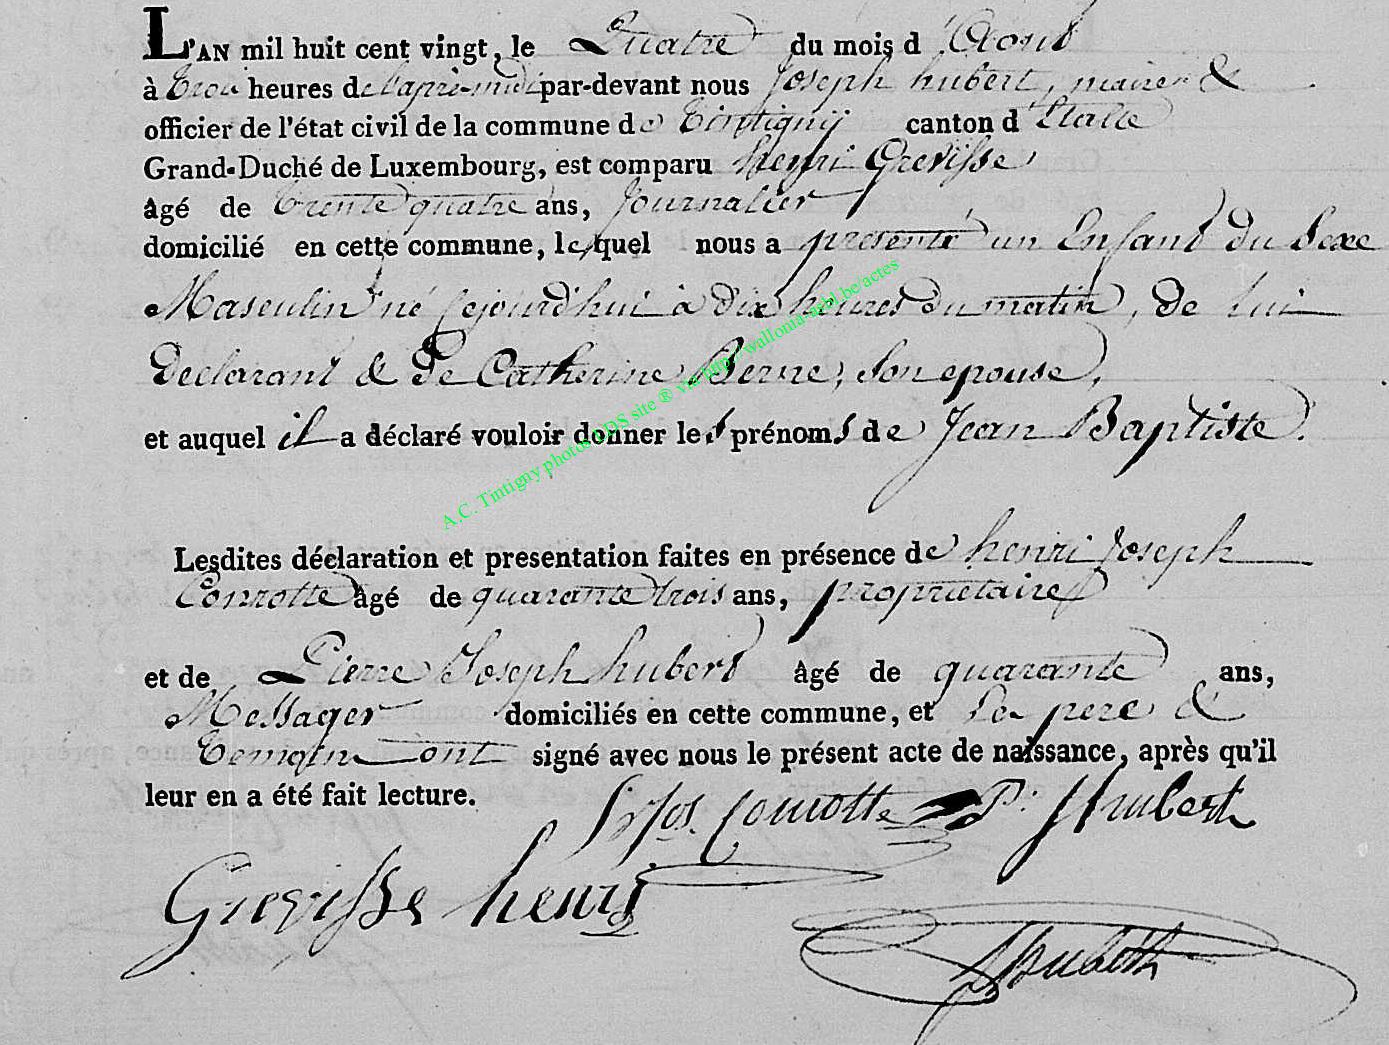 L'AN mil huit cent vingt, le Quatre du mois d'Aout
à trois heures de l'après-midi par-devant nous Joseph hubert, maire &
officier de l'état civil de la commune de Tintigny canton d'Etalle
Grand-Duché de Luxembourg, est comparu henri Grevisse
âgé de trente quatre ans, Journalier
domicilié en cette commune, lequel nous a presenté un Enfant du Sexe
Masculin né cejourd'hui à dix heures du matin, de lui
Declarant & de Catherine Berre, Son epouse,
et auquel il a déclaré vouloir donner les prénoms de Jean Baptiste.
A.C. Tintigny photos LDS site ® via http://wallonia-asbl.be/actes
Lesdites déclaration et presentation faites en présence de henri Joseph
Conrotte âgé de quarante trois ans, propriétaire
et de Pierre Joseph hubert âgé de quarante ans,
Messager domiciliés en cette commune, et Le pere &
temoin ont signé avec nous le présent acte de naissance, après qu'il
leur en a été fait lecture.
Conrotte P. J. Hubert
Grevisse henri
Hubert